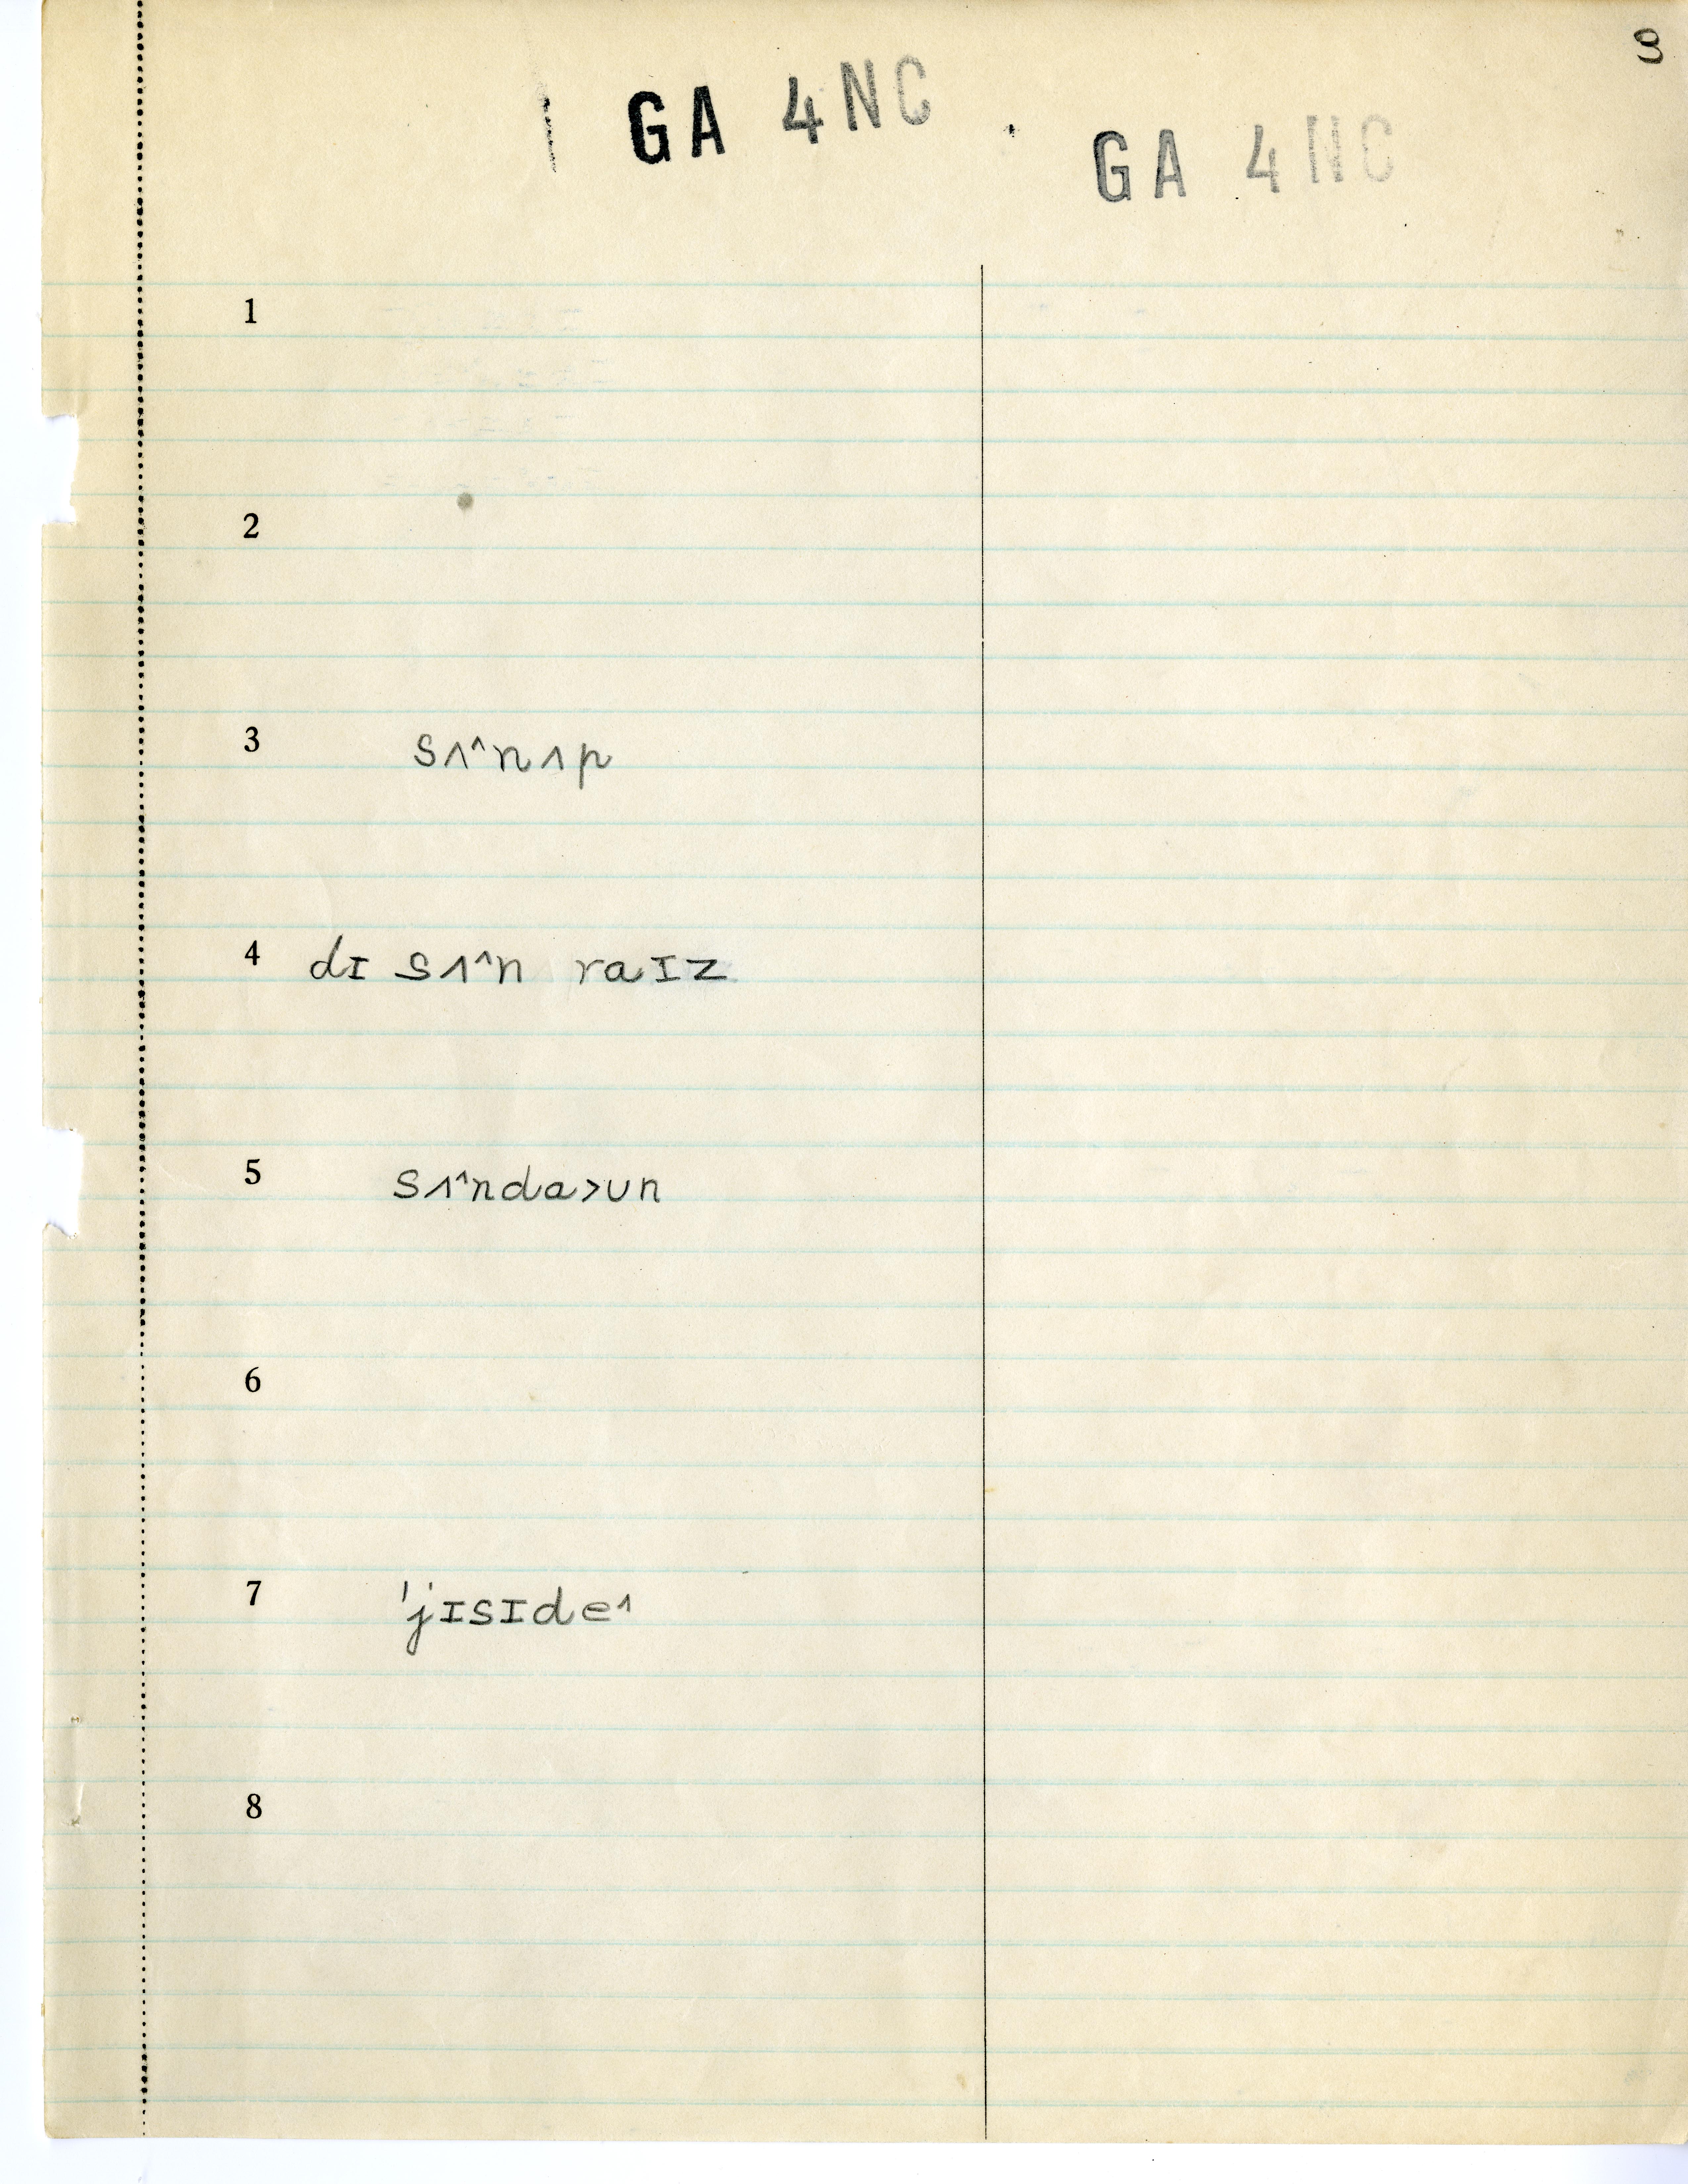 3
GA 4NC
GA 4NC
1
2
3 sʌ^nʌp
4 dɪ sʌ^n raɪz
5 sʌ^nda>ʊn
6
7 'jɪsɪde^
8